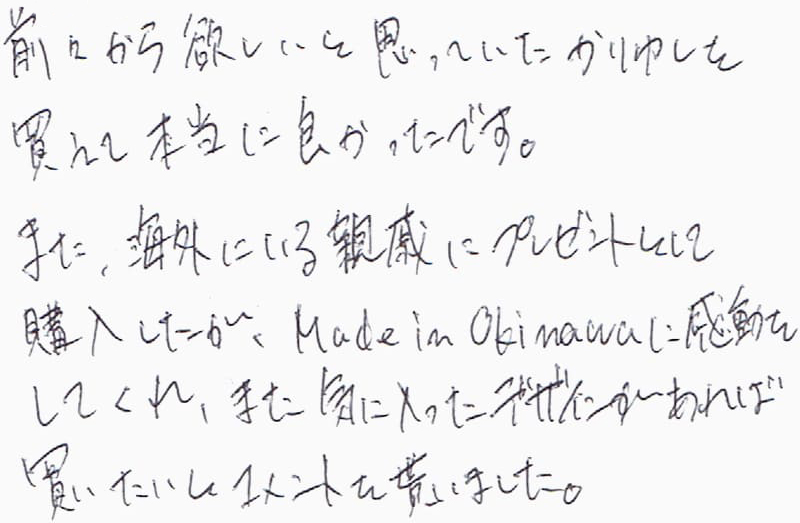 前々から欲しいと思っていたかりゆしを
買えて本当に良かったです。
また、海外にいる親戚にプレゼントとして
購入したが、Made in Okinawaに感動を
してくれ、また気に入ったデザインがあれば
買いたいとコメントを貰いました。